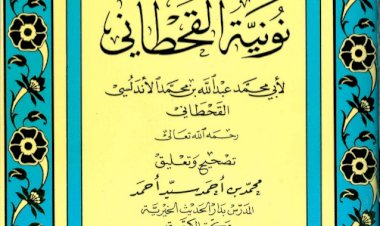 نونية القحطاني
لأبي محمد عبدالله بن محمد الأندلسي
القحطاني
رحمه الله تعالى
تصحيح وتعليق
محمد بن أحمد سيد أحمد
المدرس بدار الحديث الخيرية